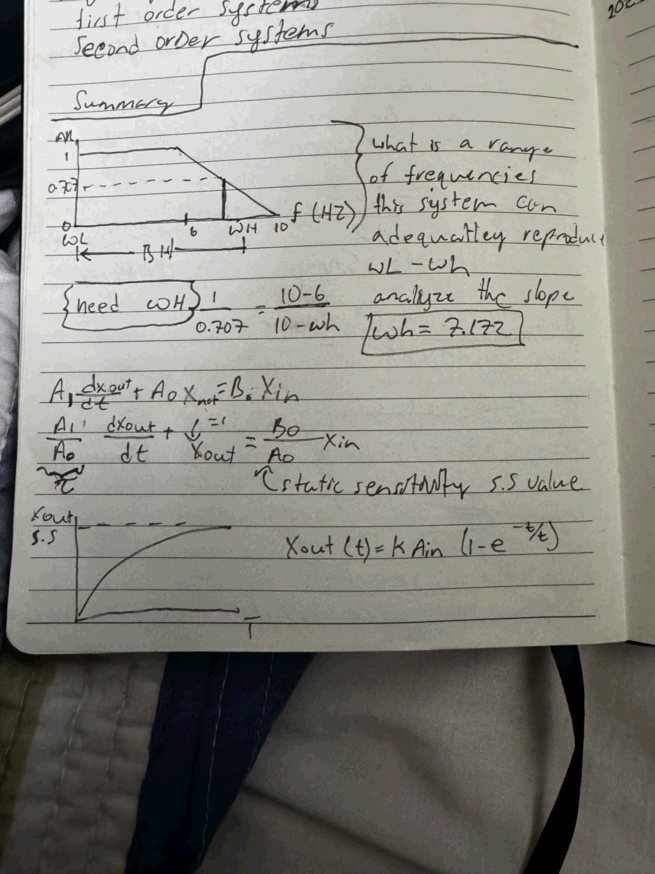 first order systems
Second order systems
Summary
1
0.707
0
WL
6
WH
10
f (HZ)
what is a range
of frequencies
this system can
adequatley reproduce
WL - Wh
{need WH} 1/0.707 = 10-6/10-wh
analyze the slope
Wh = 7.172
A1 dxout/dt + A0 Xout = B0 Xin
A1/A0 dxout/dt + Xout = B0/A0 Xin
=1
τ
static sensitivity s.s value
Xout
S.S
Xout (t) = K Ain (1-e^-t/τ)
T